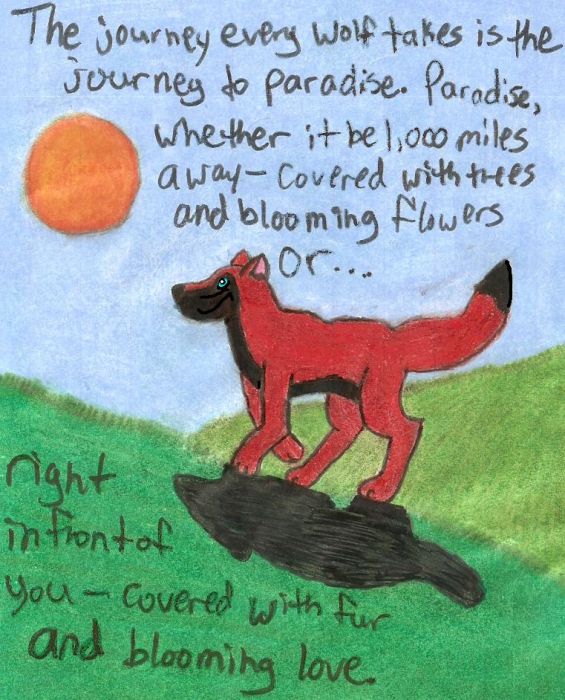 The journey every wolf takes is the
journey to paradise. Paradise,
whether it be 1,000 miles
away- covered with trees
and blooming flowers
or...
right
in front of
you - covered with fur
and blooming love.